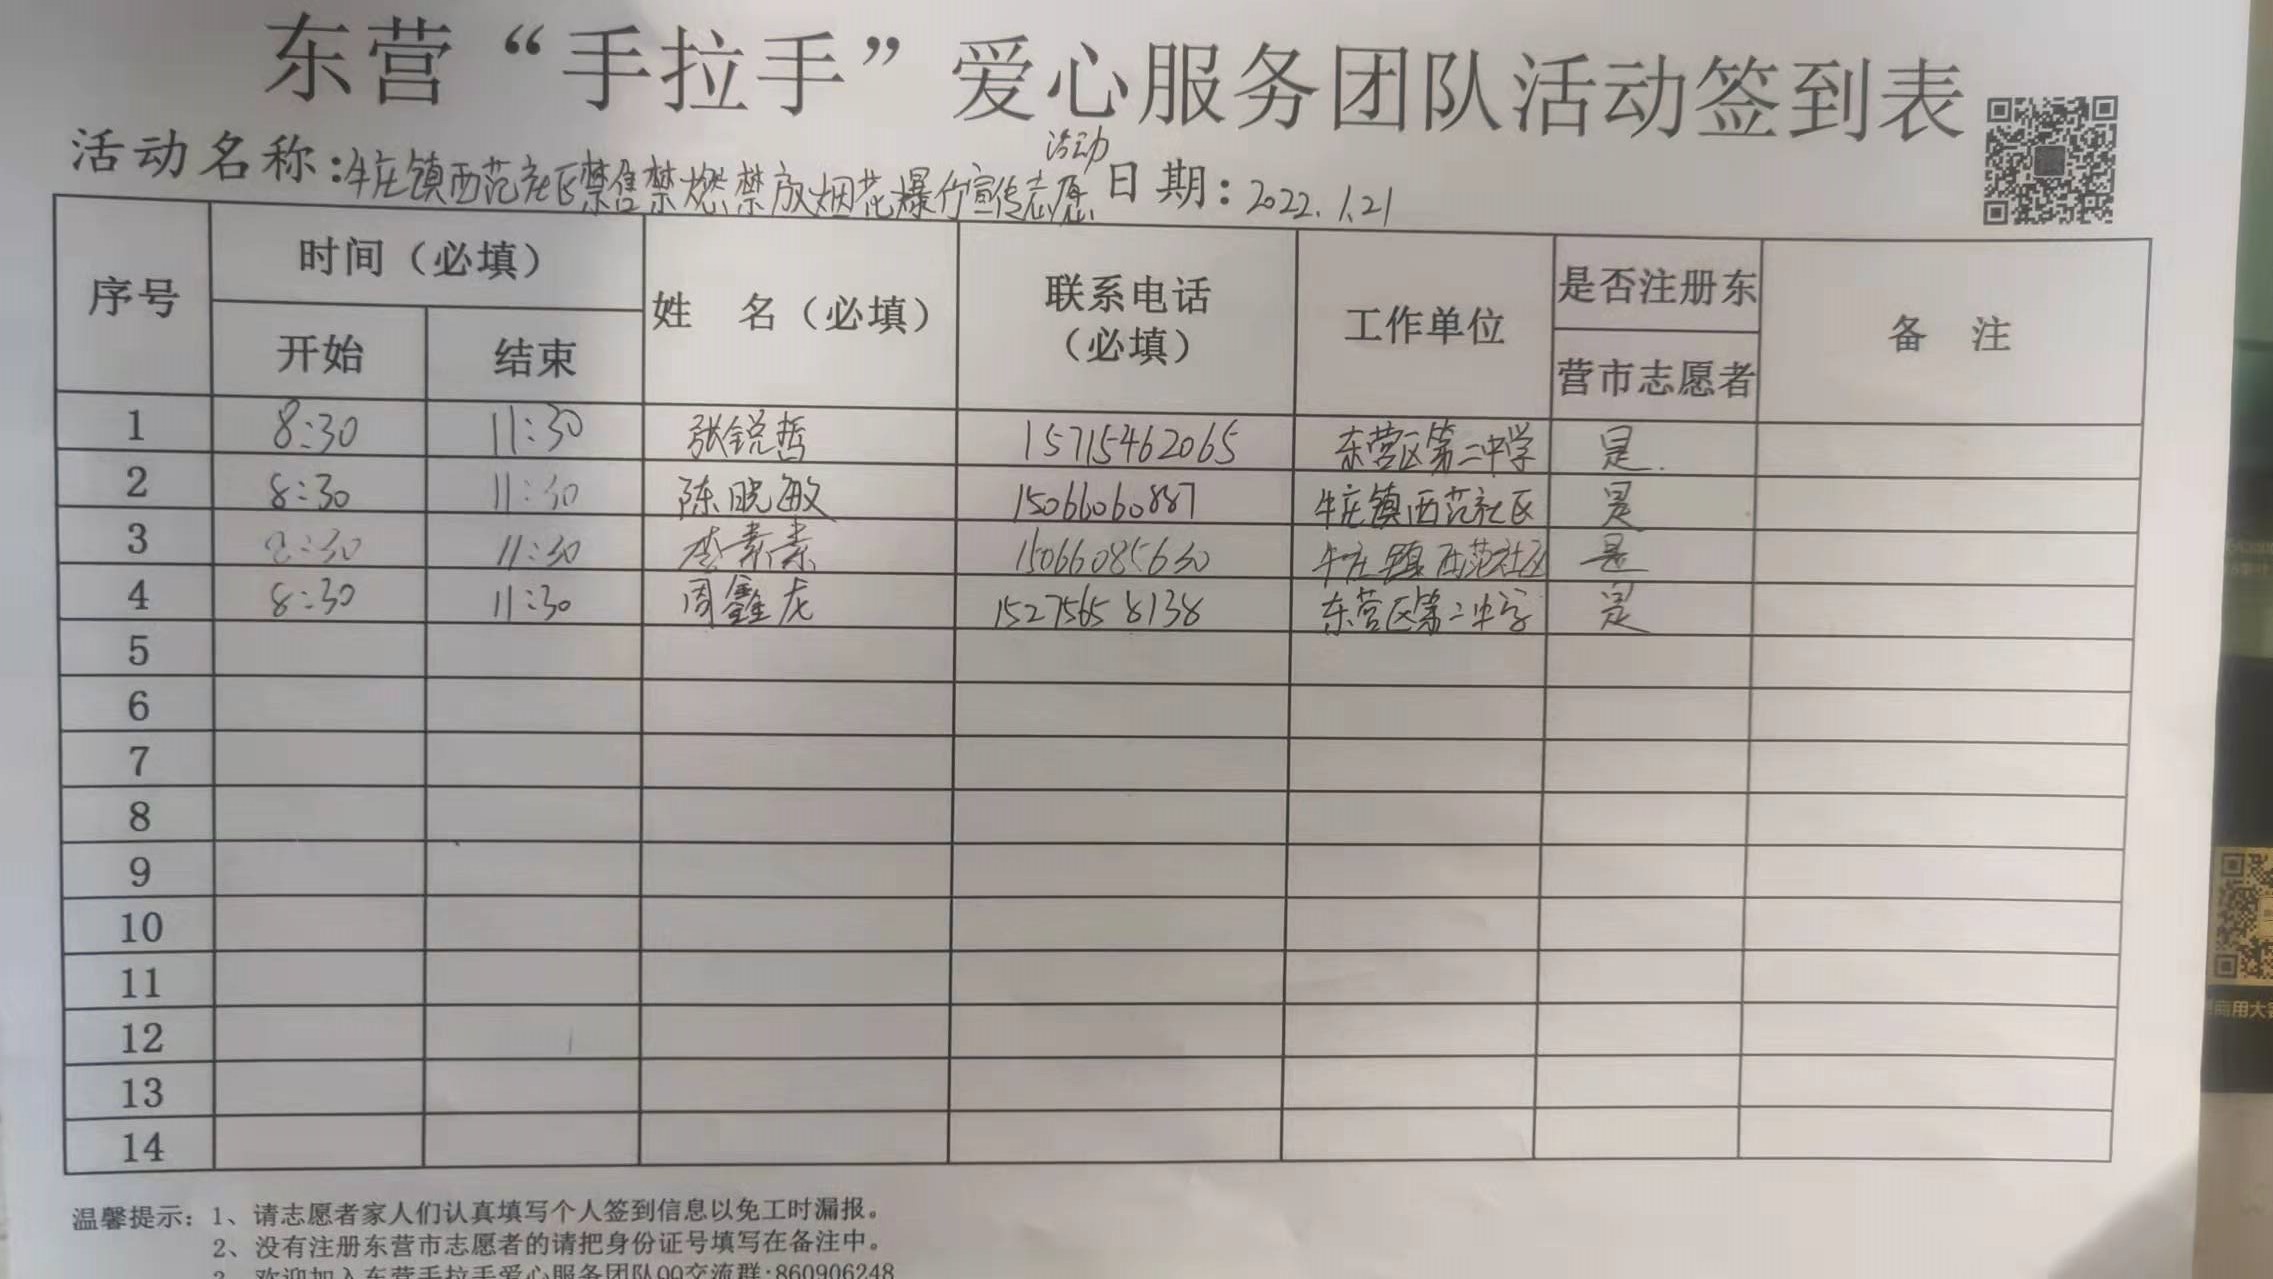 东营“手拉手”爱心服务团队活动签到表
活动名称:牛庄镇西范社区禁售禁燃禁放烟花爆竹宣传志愿活动 日期:2022.1.21
序号 时间（必填） 姓 名（必填） 联系电话（必填） 工作单位 是否注册东营市志愿者 备 注
开始 结束
1 8:30 11:30 张锐哲 15715462065 东营区第二中学 是.
2 8:30 11:30 陈晓敏 15066060887 牛庄镇西范社区 是
3 8:30 11:30 李素素 15066085630 牛庄镇西范社区 是
4 8:30 11:30 周鑫龙 15275658138 东营区第二中学 是
5
6
7
8
9
10
11
12
13
14
温馨提示：1、请志愿者家人们认真填写个人签到信息以免工时漏报。
2、没有注册东营市志愿者的请把身份证号填写在备注中。
3、欢迎加入东营手拉手爱心服务团队QQ交流群:860906248
商用大